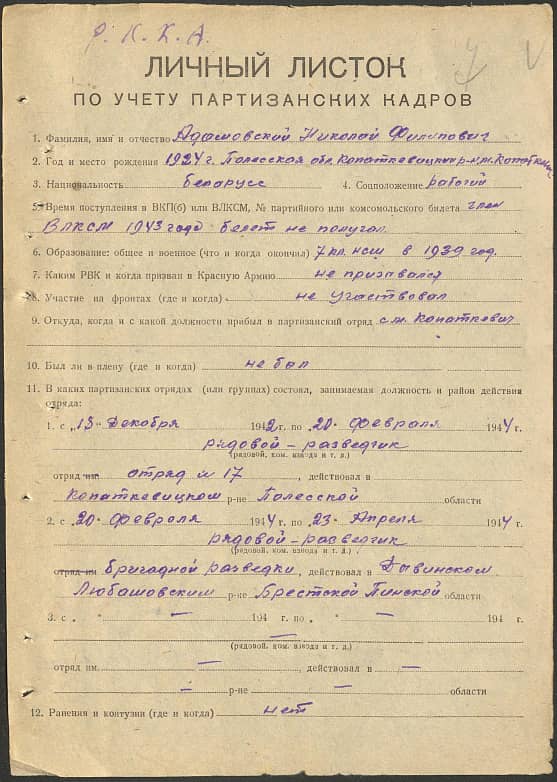 Р. К. К. А.
ЛИЧНЫЙ ЛИСТОК
ПО УЧЕТУ ПАРТИЗАНСКИХ КАДРОВ
1. Фамилия, имя и отчество Адамовский Николай Филипович
2. Год и место рождения 1924 г. Полесская обл. Копаткевицкий р-н, м. Копаткевич
3. Национальность беларусс 4. Соцположение рабочий
5. Время поступления в ВКП(б) или ВЛКСМ, № партийного или комсомольского билета член
ВЛКСМ 1943 года билет не получал
6. Образование: общее и военное (что и когда окончил) 7 кл. нсш в 1939 год.
7. Каким РВК и когда призван в Красную Армию не призвался
8. Участие на фронтах (где и когда) не участвовал
9. Откуда, когда и с какой должности прибыл в партизанский отряд с м. Копаткевич
10. Был ли в плену (где и когда) не был
11. В каких партизанских отрядах (или группах) состоял, занимаемая должность и район действия
отряда:
1. с „15" Декабря 1942 г. по „20" Февраля 1944 г.
рядовой – разведчик
(рядовой, ком. взвода и т. д.)
отряд им. отряд № 17, действовал в
Копаткевицком р-не Полесской области
2. с „20" Февраля 1944 г. по „23" Апреля 1944 г.
рядовой – разведчик
(рядовой, ком. взвода и т. д.)
отряд им бригадной разведки, действовал в
Любашовским р-не Брестской Пинской области
3. с „ — " — 194 г. по „ " — 194 г.
—
(рядовой, ком. взвода и т. д.)
отряд им. —, действовал в —
— р-не — области
12. Ранения и контузии (где и когда) нет